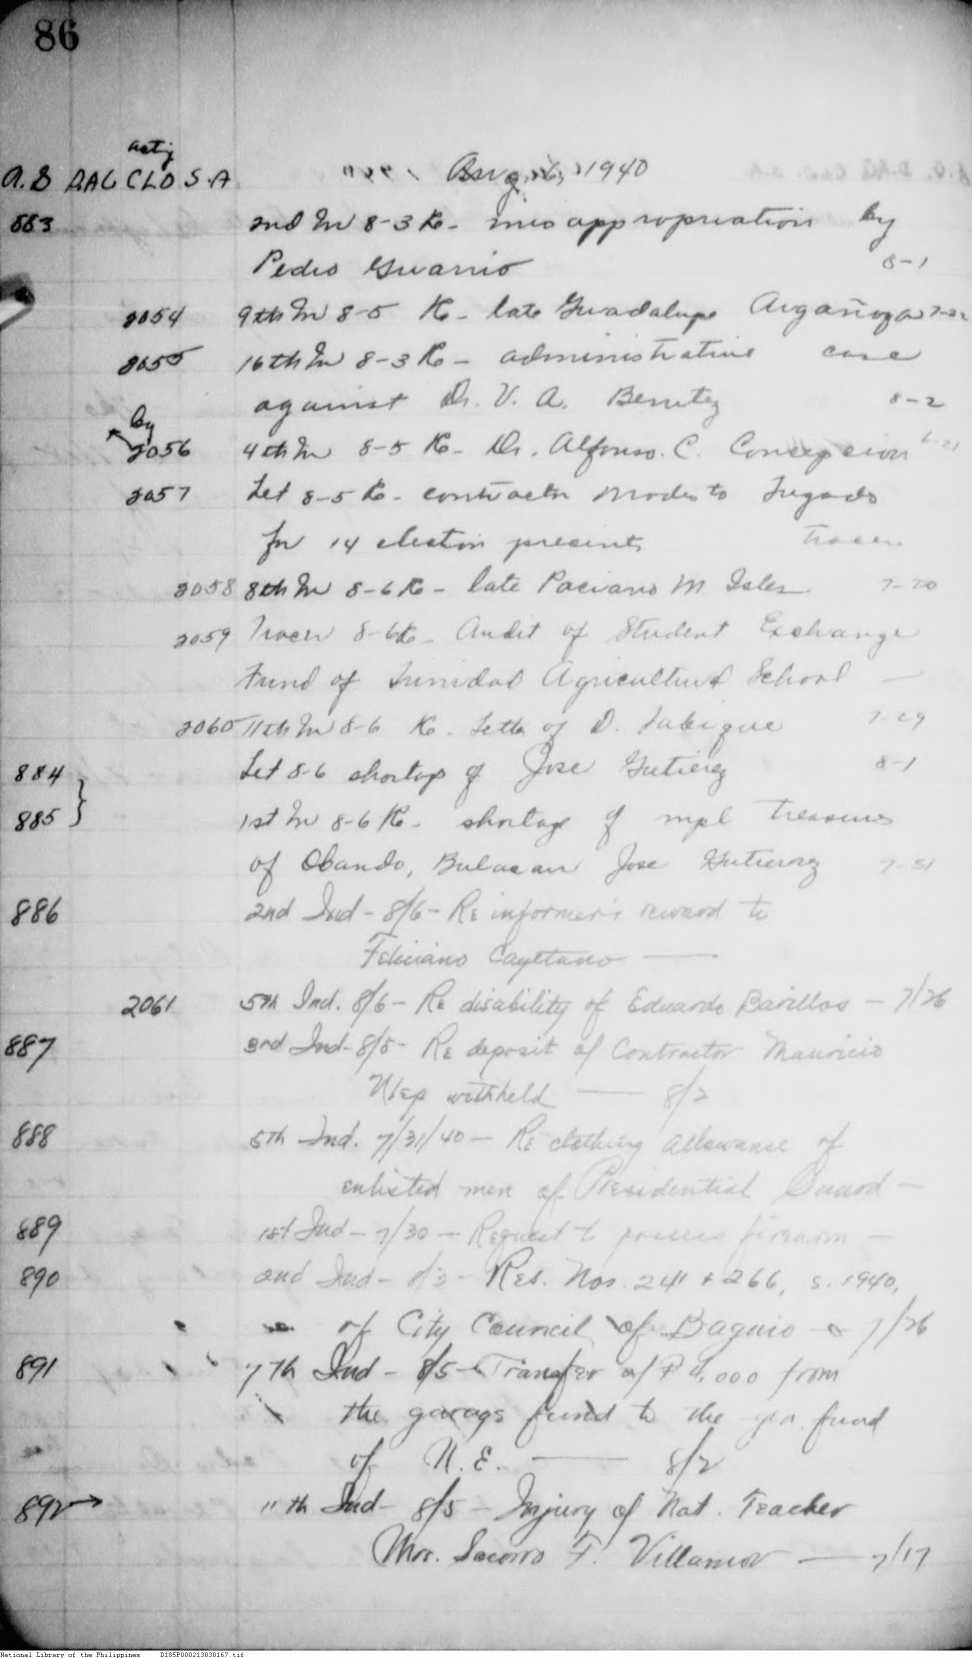 86
Actg
A.G DAG CLO S.A. Aug. 6, 1940
883 2nd In 8-3 Re- misappropriation by
Pedro Guarrio 8-1
2054 9th In 8-5 Re- late Guadalupe Argañoza 7-22
2055 16th In 8-3 Re- administrative case
against Dr. V. A. Benitez 8-2
by
2056 4th In 8-5 Re- Dr. Alfonso C. Concepcion
2057 Let 8-5 Re- contractor Modesto
for 14 election precincts tracer
2058 8th In 8-6 Re- late Paciano M. Isles 7-20
2059 Tracer 8-6 Re- Audit of Student Exchange
Fund of Trinidad Agricultural School —
2060 11th In 8-6 Re- Letter of D. 7-29
884 Let 8-6 shortage of Jose Gutierrez 8-1
885 1st In 8-6 Re- shortage of mpl treasurer
of Obando, Bulacan Jose Gutierrez 7-31
886 2nd Ind - 8/6 - Re informer's reward to
Feliciano Cayetano —
2061 5th Ind. 8/6 - Re disability of Eduardo Barillos - 7/26
887 3rd Ind - 8/5 - Re deposit of Contractor Mauricio
withheld — 8/2
888 5th Ind. 7/31/40 - Re clothing allowance of
enlisted men of Presidential Guard -
889 1st Ind - 7/30 - Request to possess firearm -
890 2nd Ind - 8/3 - Res. Nos. 241 & 266, s. 1940,
of City Council of Baguio - 7/26
891 7th Ind - 8/5 - Transfer of ₱4,000 from
the garage fund to the gen. fund
of N. E. — 8/2
892→ 11th Ind - 8/5 - Injury of Nat. Teacher
Mrs. Socorro F. Villamor — 7/17
National Library of the Philippines D185P000213030167.tif